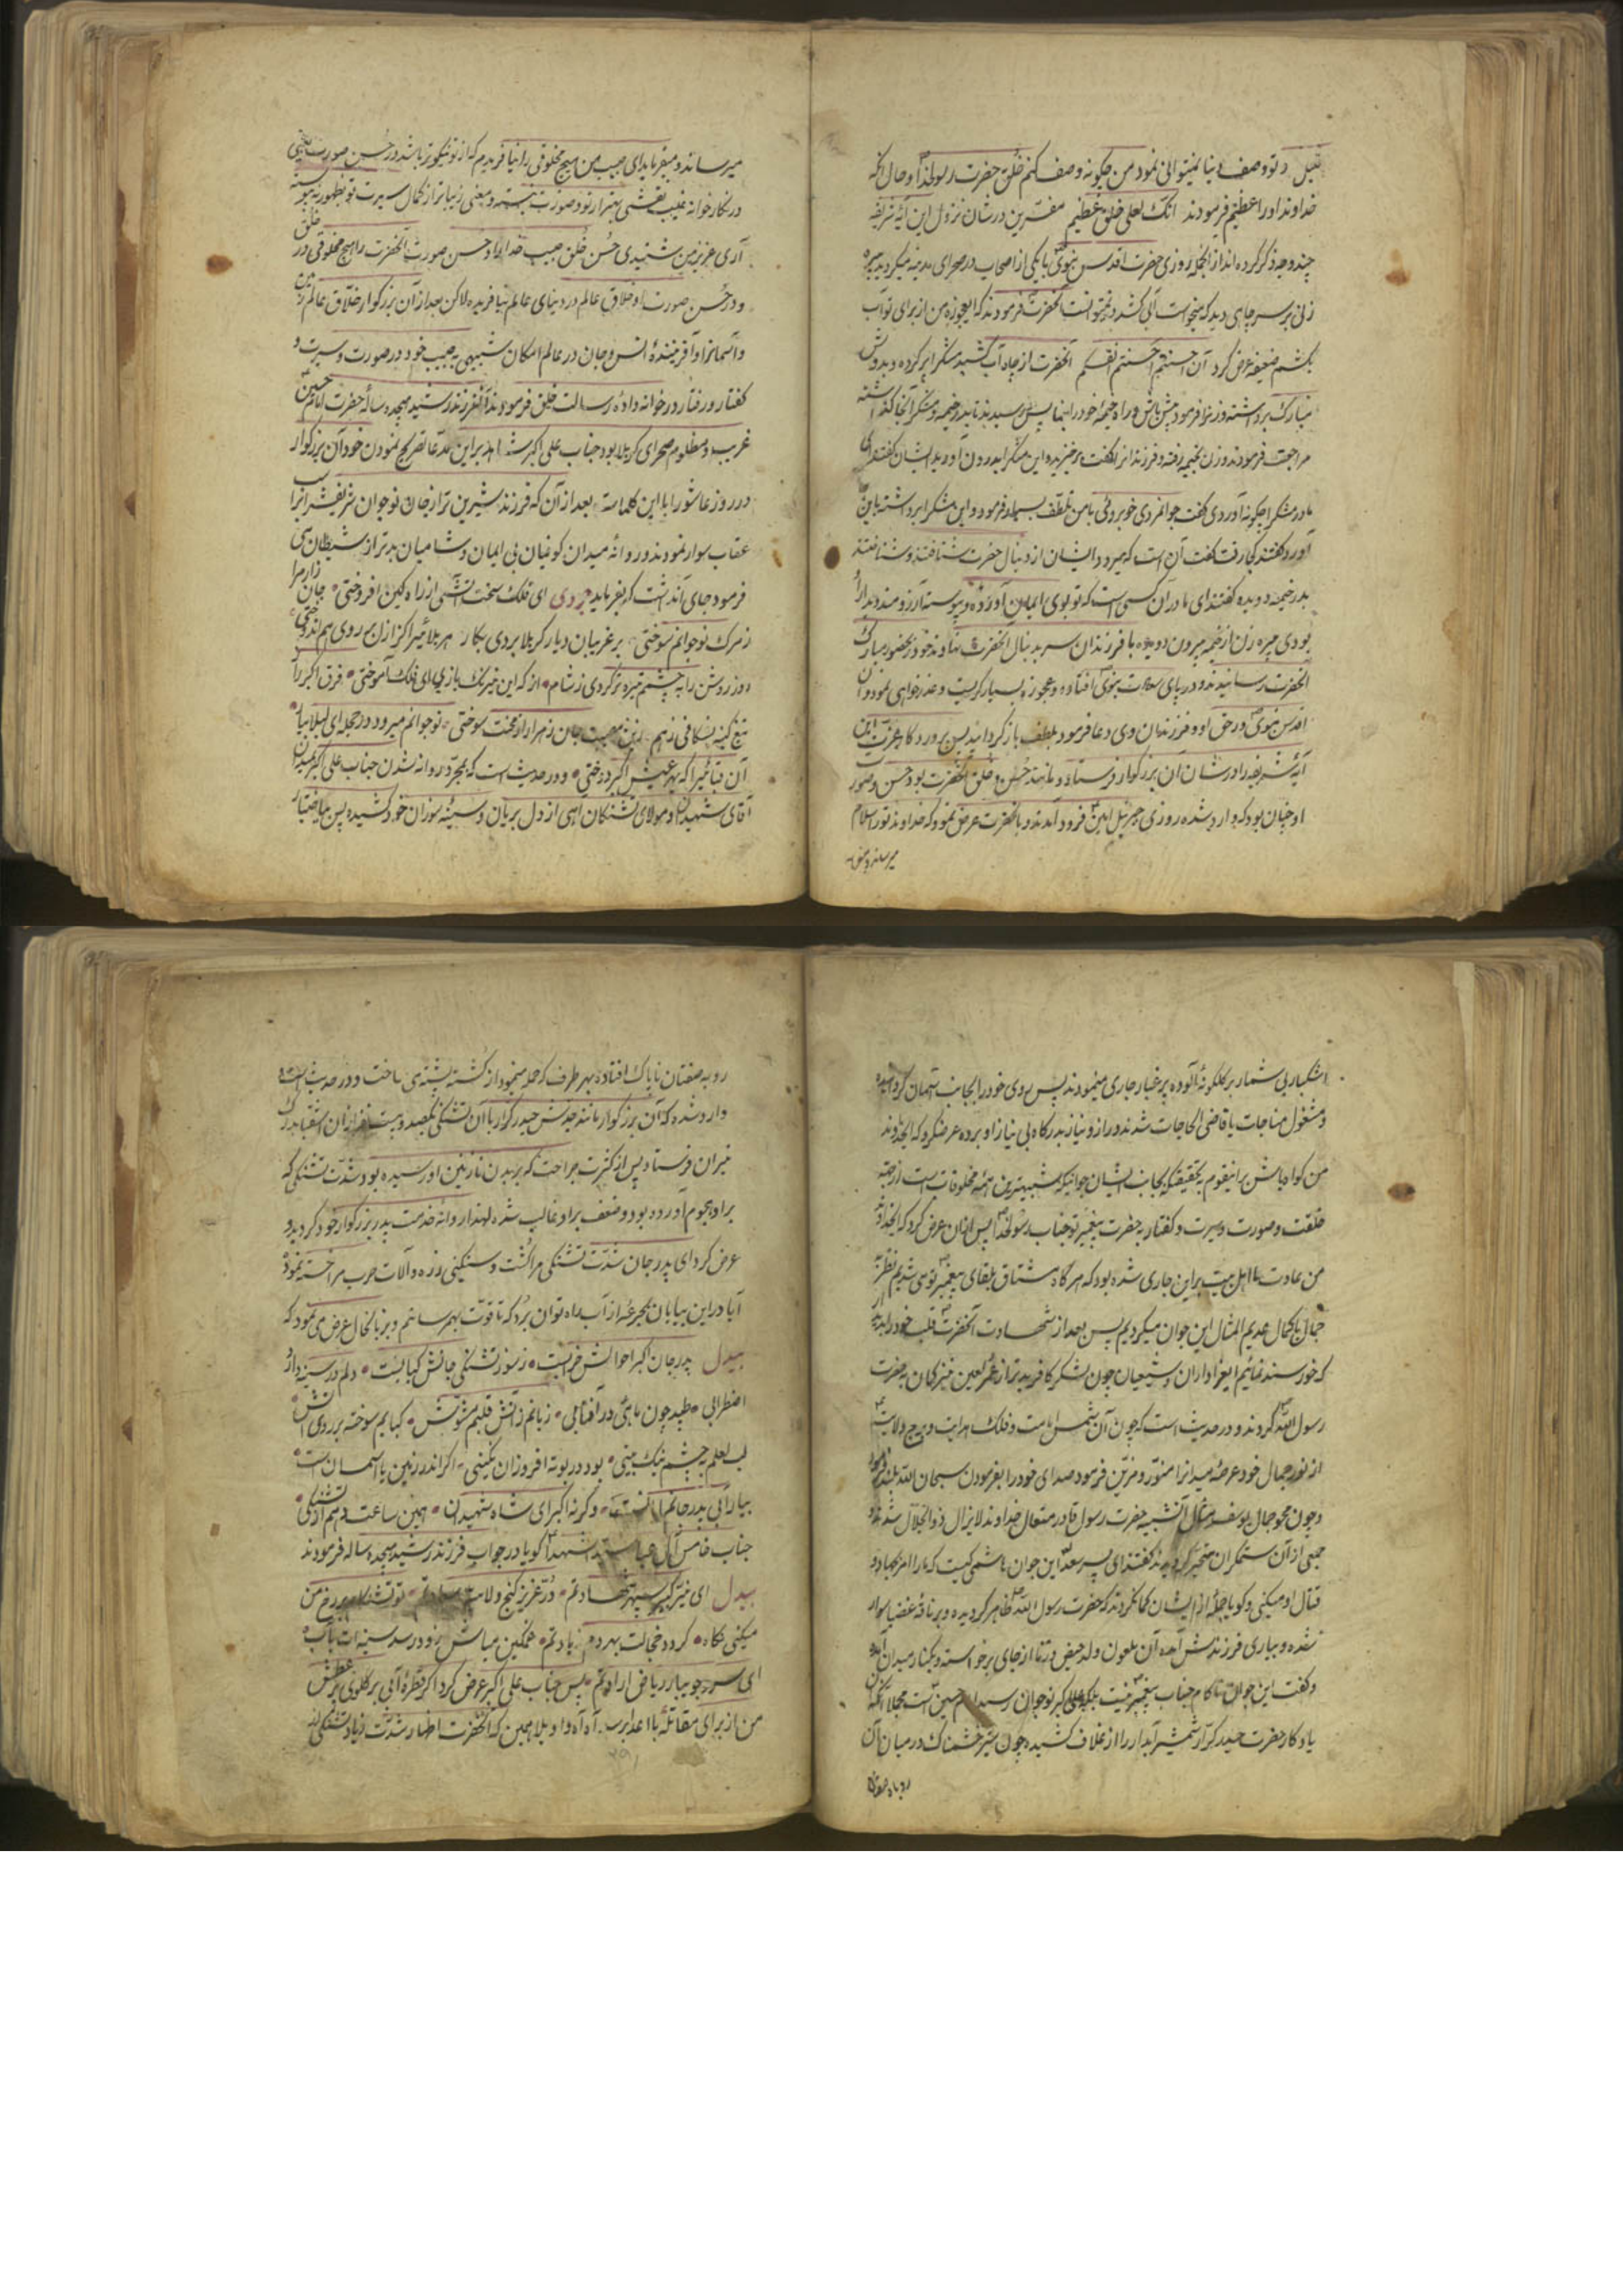 قلیل و تو وصف دنیا نمیتوانی نمود من چگونه وصف کنم خلق حضرت رسولخدا و حال آنکه
خداوند او را عظیم فرمودند انک لعلی خلق عظیم مفسرین در شان نزول این آیه شریفه
چند وجه ذکر کرده اند از آنجمله روزی حضرت اقدس نبوی با یکی از اصحاب در صحرای مدینه میگردید پیره
زنی بر سر چاهی دید که میخواست آبی کشد و نمیتوانست آنحضرت فرمودند که ایعجوزه من از برای تو آب
بکشم ضعیفه عرض کرد ان احسنتم احسنتم لانفسکم آنحضرت از چاه آب کشید مشک را پر کرده و بدوش
مبارک برداشته و زنرا فرمود پیش باش و راه خیمه خود را بنما پس رسیدند تا بدر خیمه و مشک را آنجا گذاشته
مراجعت فرمودند و زن بخیمه رفته و فرزندانرا گفت برخیزید و این مشک را بدرون آورید ایشان گفتند ای
مادر مشک را چگونه آوردی گفت جوانمردی خوبروئی با من تلطف بسیار فرمود و این مشک را برداشته باینجا
آورد گفتند کجا رفت گفت آن است که میرود ایشان از دنبال حضرت شتافتند و شناختند
بدر خیمه دویده گفتند ای مادر آن کسی است که تو بوی ایمان آورده و پیوسته آرزومند دیدار او
بودی پیره زن از خیمه بیرون دویده با فرزندان سر بدنبال آنحضرت نهاوند خود را بحضور مبارک
آنحضرت رسانیدند و در پای حضرت نبوی افتاده و عجوزه بسیار گریست و عذرخواهی نمود و آن
اقدس نبوی در حق او و فرزندان وی دعا فرمود بلطف باز گردانید پس پروردگار عزت این
آیه شریفه را در شان آن بزرگوار فرستاد و مانند حسن و خلق آنحضرت بود حسن و صورت
او چنان بود که وارد شده روزی جبرئیل امین فرود آمدند و بانحضرت عرض نمود که خداوند تو را سلام
میرساند و میفر
میرساند و میفرماید ای حبیب من هیچ مخلوقی را نیافریدم که از تو نیکوتر باشد در حسن صورت یعنی
در نگارخانه غیب نقشی بهتر از تو و صورت نبسته و معنی زیباتر از کمال سیرت تو بظهور نپیوسته
آری عزیز من شنیدی حسن خلق حبیب خدا را و حسن صورت آنحضرت را هیچ مخلوقی در خلق
و در حسن صورت خلاق عالم در دنیای عالم نیافریده لاکن بعد از آن بزرگوار خلاق عالم زمین
و آسمانرا و آفریننده انس و جان در عالم امکان شبیهی به حبیب خود در صورت و سیرت و
گفتار و رفتار در خوانه داده رسالت خلق فرمودند آنفرزند رشید هیجده ساله حضرت امام حسین
غریب و مظلوم صحرای کربلا بود جناب علی اکبر شاهد بر این مدعا تصریح نمودن خود آن بزرگوار
در روز عاشورا با این کلمات بعد از آن که فرزند شیرین تر از جان نوجوان شریفش را بر اسب
عقاب سوار نمودند و روانه میدان کوفیان بی ایمان و شامیان بدتر از شیطان می
فرمود جای آنداشت که بفرماید جودی ای فلک سخت آتشی از راه کین افروختی جان زار مرا
ز مرگ نوجوانم سوختی بر غریبان دیار کربلا بردی بکار هر بلائیرا کز ازل بر روی هم اندوختی
روز روشن را به چشمم تیره تر کردی ز شام از که این نیرنگ بازی ای فلک آموختی فرق اکبر را ز
تیغ کینه بشکافی ز هم زین مصیبت جان زهرا را ز محنت سوختی نوجوانم میرود در حجله ای لیلا بیا
آن قبائیرا که بهر عیش اکبر دوختی و در حدیث است که بمجرد روانه شدن جناب علی اکبر بمیدان
آقای شهیدان و مولای تشنگان آهی از دل بریان و سینه سوزان خود کشیده پس بی اختیار
اشکبار بی شمار بر گلگونه آلوده پر غبار جاری مینمودند پس روی خود را بجانب آسمان گردانیده
و مشغول مناجات با قاضی الحاجات شدند و راز و نیاز بدرگاه بی نیاز او برده عرض کرد که ایخداوند
من گواه باش بر اینقوم بتحقیقکه بجانب ایشان جوانیکه شبیهترین همه مخلوقات است از جهت
خلقت و صورت و سیرت و گفتار به حضرت پیغمبر تو جناب رسولخدا پس از آن عرض کرد که ایخداوند
من عادت ما اهل بیت بر این جاری شده بود که هر گاه مشتاق بلقای پیغمبر تو می شدیم نظر بر
جمال با کمال عدیم المثال این جوان میکردیم پس بعد از شهادت آنحضرت قلب خود را بدیدار
که خورسند نمائیم ایعزاداران و شیعیان چون لشکر کافر بدتر از عمر لعین نیز گمان به حضرت
رسول الله کردند و در حدیث است که چون آن شمس امامت و فلک هدایت و برج ولایت
از نور جمال خود عرصه میدانرا منور و مزین فرمود صدای خود را بفرمودن سبحان الله بلند فرمود
و چون محو جمال یوسف مثال آنشبیه حضرت رسول قادر متعال خداوند لایزال ذو الجلال شدند
جمعی از آن ستمگران متحیر گردیدند گفتند ای پسر سعد این جوان هاشمی کیست که ما را امر بجهاد و
قتال او میکنی و گویا جمله از ایشان گمان کردند که حضرت رسول الله ظاهر گردیده و بر ناقه غضبا سوار
شده و بیاری فرزندش آمده آن ملعون ولد حیض و زنا از جای برخواسته و بکنار میدان آمد
و گفت این جوان ناکام جناب پیغمبر نیست بلکه علی اکبر نوجوان امام حسین است مجملا آنکه آن
یادگار حضرت حیدر کرار شمشیر آبدار را از غلاف کشیده چون شیر خشمناک در میان آن
روباه صفتان
روبه صفتان ناپاک افتاده بهر طرف که حمله مینمود از کشته پشته ی ساخت و در حدیث است
وارد شده که آن بزرگوار مانند جدش حیدر کرار با آن تشنگی یکصد و بیست نفر از آن اشقیا بدرک
نیران فرستاد پس از کثرت جراحت که بر بدن نازنین او رسیده بود شدت تشنگی که
بر او هجوم آورده بود و ضعف بر او غالب شده لهذا روانه خدمت پدر بزرگوار خود گردید و
عرض کرد ای پدر جان شدت تشنگی مرا کشت و سنگینی زره و آلات حرب مرا خسته نموده
آیا در این بیابان بجرعه از آب راه توان برد که تا قوت بهم رسانم و بزبانحال عرض می نمود که
بیدل پدر جان اکبر احوالش خرابیست ز سوز تشنگی جانش کبابیست دلم در سینه دارد
اضطرابی طپید چون ماهئی در آفتابی زبانم ز آتش قلبم مشوش کبابم سوخته بر روی آتش
لب لعلم چشم نیک بینی بود در بوته افروزان نگینی اگر اندر زمین یا آسمان است
بیار آبی پدر جانم امان است وگرنه اکبر ای شاه شهیدان همین ساعت دهم از تشنگی
جناب خامس آل عبا سید الشهدا گویا در جواب فرزند رشید هیجده ساله فرمودند
بیدل ای نیر سپهر شهادتم در عزیز گنج ولامت سعادتم تو تشنه کام بر رخ من
میکنی نگاه گردد خجالت بهر دم زیادتم غمگین مباش زود رسد سینه ات بآب
ای سرو جویبار ریاض ارادتم پس جناب علی اکبر عرض کرد اگر قطره آبی بر گلوی پر عطش
من از برای مقاتله با اعدا برسد آه آه واویلا همین که آنحضرت اظهار شدت زیاد تشنگی
۳۹۱